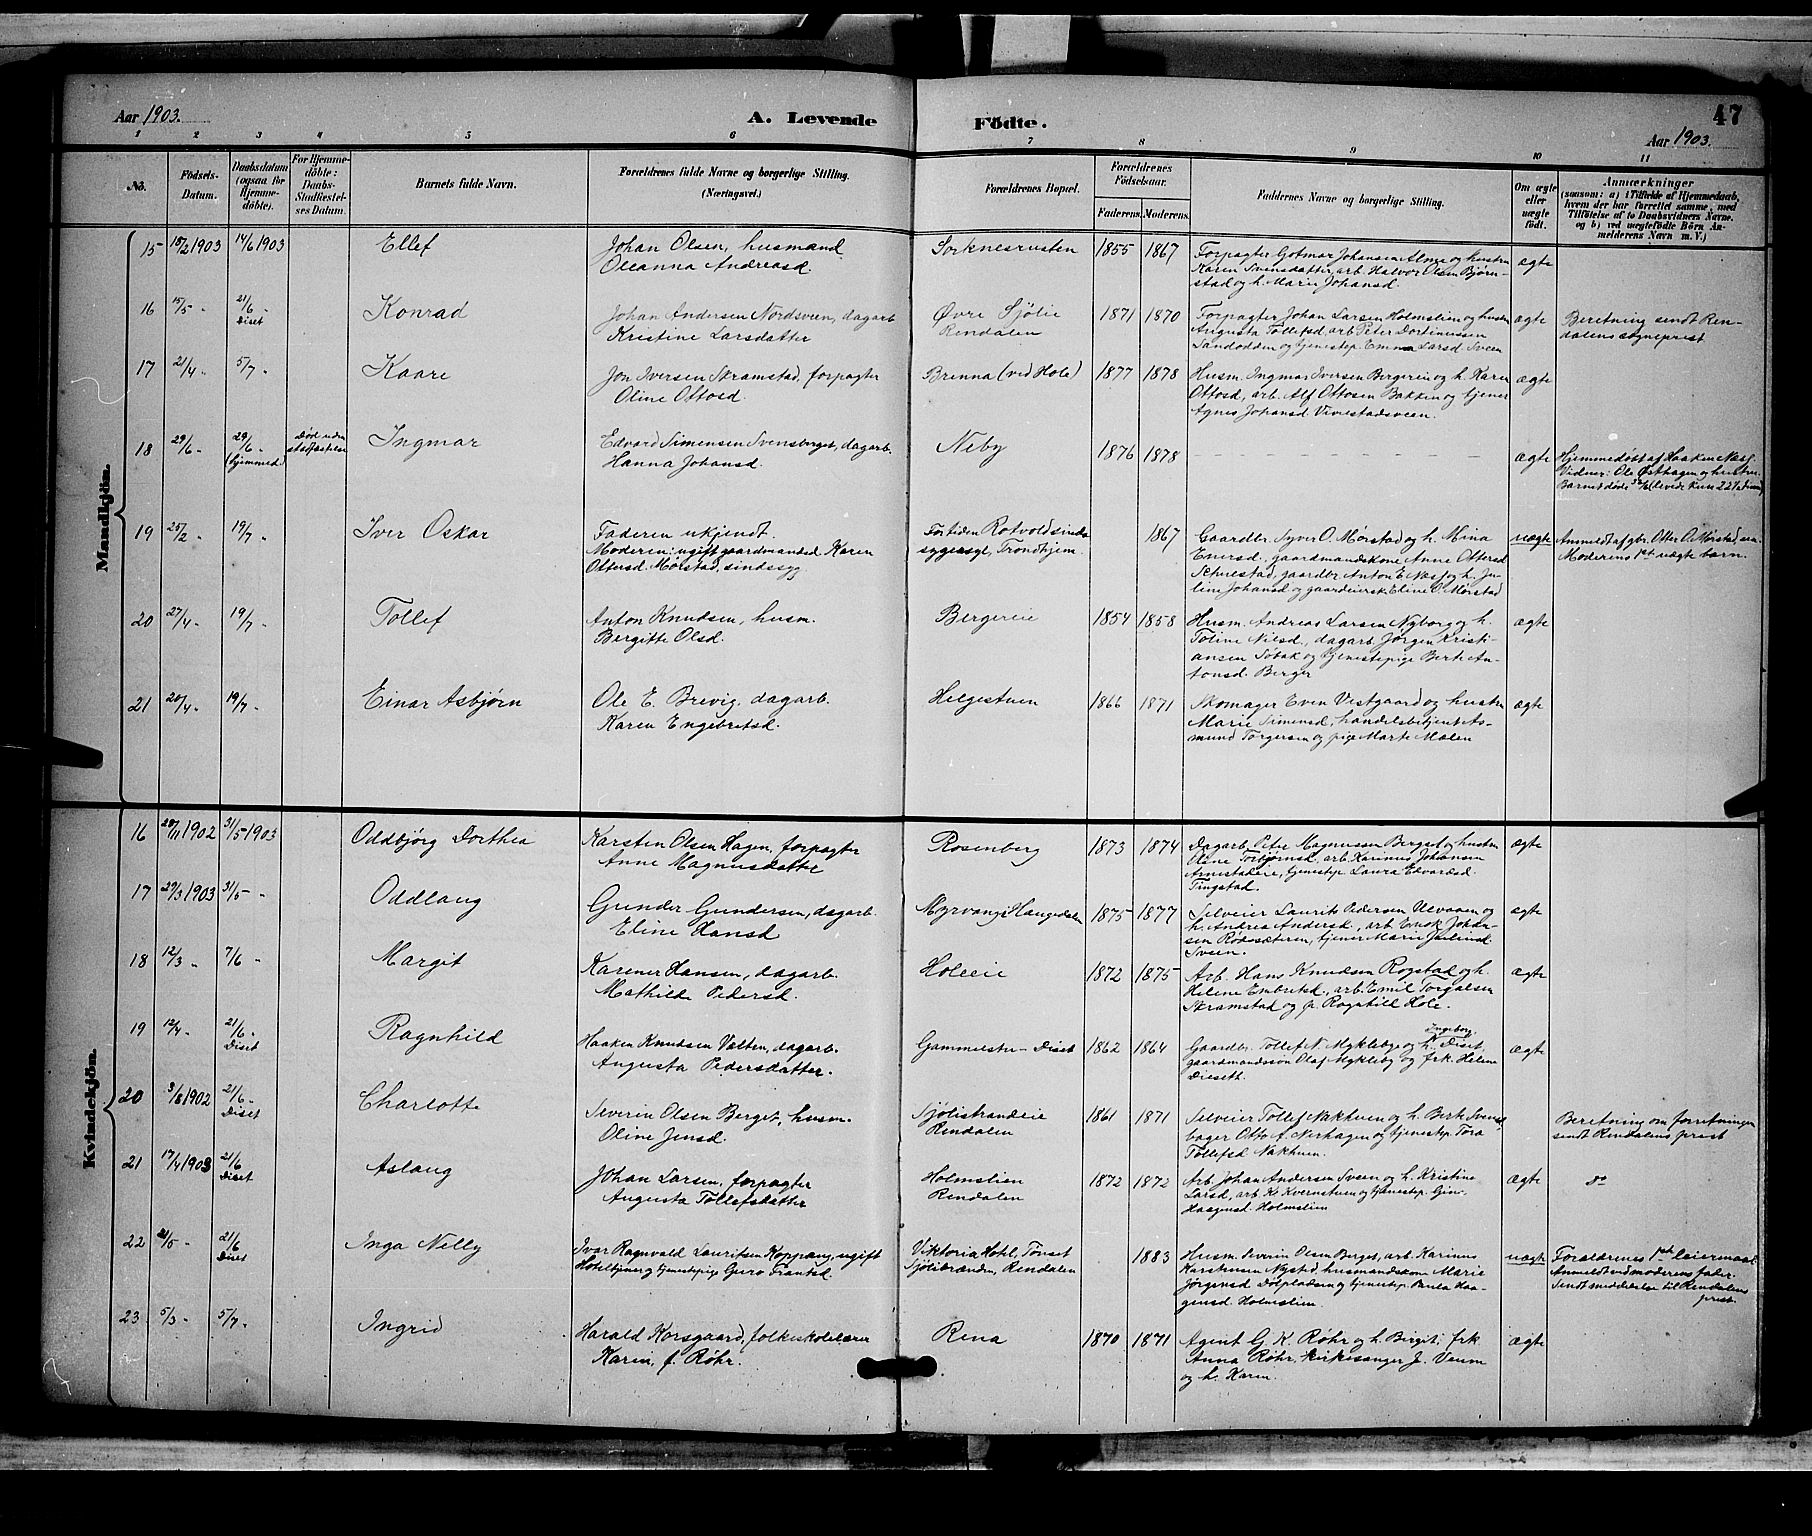 47
Aar 1903.
A. Levende Födte.
Aar 1903.
1 2 3 4 5 6 7 8 9 10 11
No.
Födsels-Datum.
Daabsdatum (ogsaa för Hjemme-döbte).
For Hjemme-döbte: Daabs-Stadfæstel-ses Datum.
Barnets fulde Navn.
Forældrenes fulde Navne og borgerlige Stilling. (Næringsvei.)
Forældrenes Bopæl.
Forældrenes Födselsaar.
Faderens. Moderens.
Faddernes Navne og borgerlige Stilling.
Om ægte eller uægte födt.
Anmærkninger
(saasom: a) i Tilfælde af Hjemmedaab, hvem der har forrettet samme, med Tilföielse af to Daabsvidners Navne, og b) ved uægtefödte Börn An-melderens Navn m. V.)
Mandkjön.
15 18/2 1903 14/6 1903 Ellef
Johan Olsen, husmand
Oleanna Andreasd.
Sorknesrusten 1855 1867
Forpagter Gotmar Johansen Alme og hustru
Karen Svensdatter, arb. Halvor Olsen Bjørn-
stad og h. Marie Johansd.
ægte
16 15/5 - 21/6 - Diset Konrad
Johan Andersen Nordsveen, dagarb
Kristine Larsdatter
Øvre Sjölie
Rendalen
1871 1870
Forpagter Johan Larsen Holmslien og hustru
Augusta Tollefsd, arb. Peter Dortinussen
Sandodden og tjenestep. Emma Larsd Sveen
ægte
Beretning sendt Ren-
dalens sogneprest
17 21/4 - 5/7 - Kaare
Jon Iversen Skramstad, forpagter
Oline Ottosd.
Brenna (ved Hole) 1877 1878
Husm. Ingmar Iversen Bergereie og h. Karen
Ottosd, arb. Alf Ottosen Bakken og tjener
Agnes Johansd Vivestadsveen.
ægte
18 29/6 - 29/6 - (hjemmed) Död uden stadfæstelse Ingmar
Edvard Simensen Svensberget, dagarb.
Hanna Johansd.
Neby 1876 1878
ægte
Hjemmedøbt af Haaken Næs.
Vidner: Ole Østhagen og hustru.
19 25/2 - 19/7 - Iver Oskar
Faderen ukjendt.
Moderen: ugift gaardmandsd Karen
Ottersd. Mørstad, sindssyg
For tiden Rotvoldsinds
sygeasyl, Trondhjem
1867
Gaardbr. Syver O. Mørstad og h. Mina
Enersd, gaardmandskone Anne Ottersd
Schiestad, gaardbr Anton E Næs og h. Ju-
line Johansd og gaardeiersk Eline O. Mørstad
uægte
Anmeldt af gbr. Otter O. Mørstad
Moderens 1st uægte barn.
20 27/4 - 19/7 - Tollef
Anton Knudsen, husm.
Bergitte Olsd.
Bergereie 1854 1858
Husm. Andreas Larsen Nyborg og h.
Toline Nilsd, dagarb Jørgen Kristi-
ansen Søbak og tjenestepige Berte An-
tonsd. Berger
ægte
21 20/4 - 19/7 - Einar Asbjørn
Ole E. Brevig, dagarb.
Karen Engebretsd.
Helgestuen 1866 1871
Skomager Even Vestgaard og hustru
Marie Simensd, handelsbetjent As-
mund Torgersen og pige Marte Mælen
ægte
Kvindekjön.
16 28/11 1902 31/5 1903 Oddbjörg Dorthea
Karsten Olsen Hagen, forpagter
Anne Magnusdatter
Rosenberg 1873 1874
Dagarb. Peter Magnussen Berget og hustru
Oline Torbjørnsd., arb. Karinus Johansen
Arnestadeie, tjenestep. Laura Edvardsd.
Tingstad.
ægte
17 29/3 1903 31/5 - Oddlaug
Gunder Gundersen, dagarb.
Eline Hansd
Myrvang i Haugedalen 1875 1877
Selveier Laurits Pedersen Ulvaaen og
h. Andrea Andersd., arb Enok Johan-
sen Rødssæteren, tjener Marie Paulined
Sveen.
ægte
18 12/3 - 7/6 - Margit
Karener Hansen, dagarb.
Mathilde Pedersd.
Holeeie 1872 1875
Arb. Hans Knudsen Rogstad og h.
Helene Embretsd., arb. Emil Torgalsen
Skramstad og p. Rognhill Hole.
ægte
19 12/4 - 21/6 - Diset Ragnhild
Haaken Knudsen Valten, dagarb.
Augusta Pedersdatter.
Gammelstu-Diset 1862 1864
Gaardbr. Tollef N. Mykleby og h. Ingeborg Diset
gaardmandssøn Olaf Mykleby og frk. Helene
Diseth.
ægte
20 3/8 1902 21/6 - Diset Charlotte
Severin Olsen Berget, husm.
Oline Jensd.
Sjölistrandeie
Rendalen
1861 1871
Selveier Tollef Nakhuen og h. Berte Svensd
bager Otto A. Nerhagen og tjenestep. Tora
Tollefsd Nakhuen.
Beretning om forretningen
sendt Rendalens prest
21 17/4 1903 21/6 Diset Aslaug
Johan Larsen, forpagter
Augusta Tollefsdatter
Holmslien
Rendalen
1872 1872
Arb. Johan Andersen Sveen og h. Kristine
Larsd, arb. K. Kvernstuen og tjenestep. Gina
Haagensd. Holmslien
ægte
do
22 21/5 - 21/6 Diset Inga Nelly
Ivar Ragnvald Lauritsen Koppang, ugift
Hoteltjener og tjenestepige Guro Frantsd.
Viktoria Hotl, Tönset
Sjölibrænden, Rendalen
1883
Husm. Severin Olsen Berget, arb. Karinus
Karstensen Nystad, husmandskone Marie
Jörgensd. Dölpladsen og tjenestep. Paula Haa-
gensd. Holmslien
uægte
Forældrenes 1ste leiermaal
Anmeldt ved moderens fader.
Sendt meddelelse til Rendalens
prest.
23 5/3 - 5/7 - Ingrid
Harald Korsgaard, folkeskolelærer
Karin, f. Røhr.
Rena 1870 1871
Agent G. K. Røhr og h. Birgit, frk
Anna Røhr, kirkesanger J. Veum
og h. Karen.
ægte